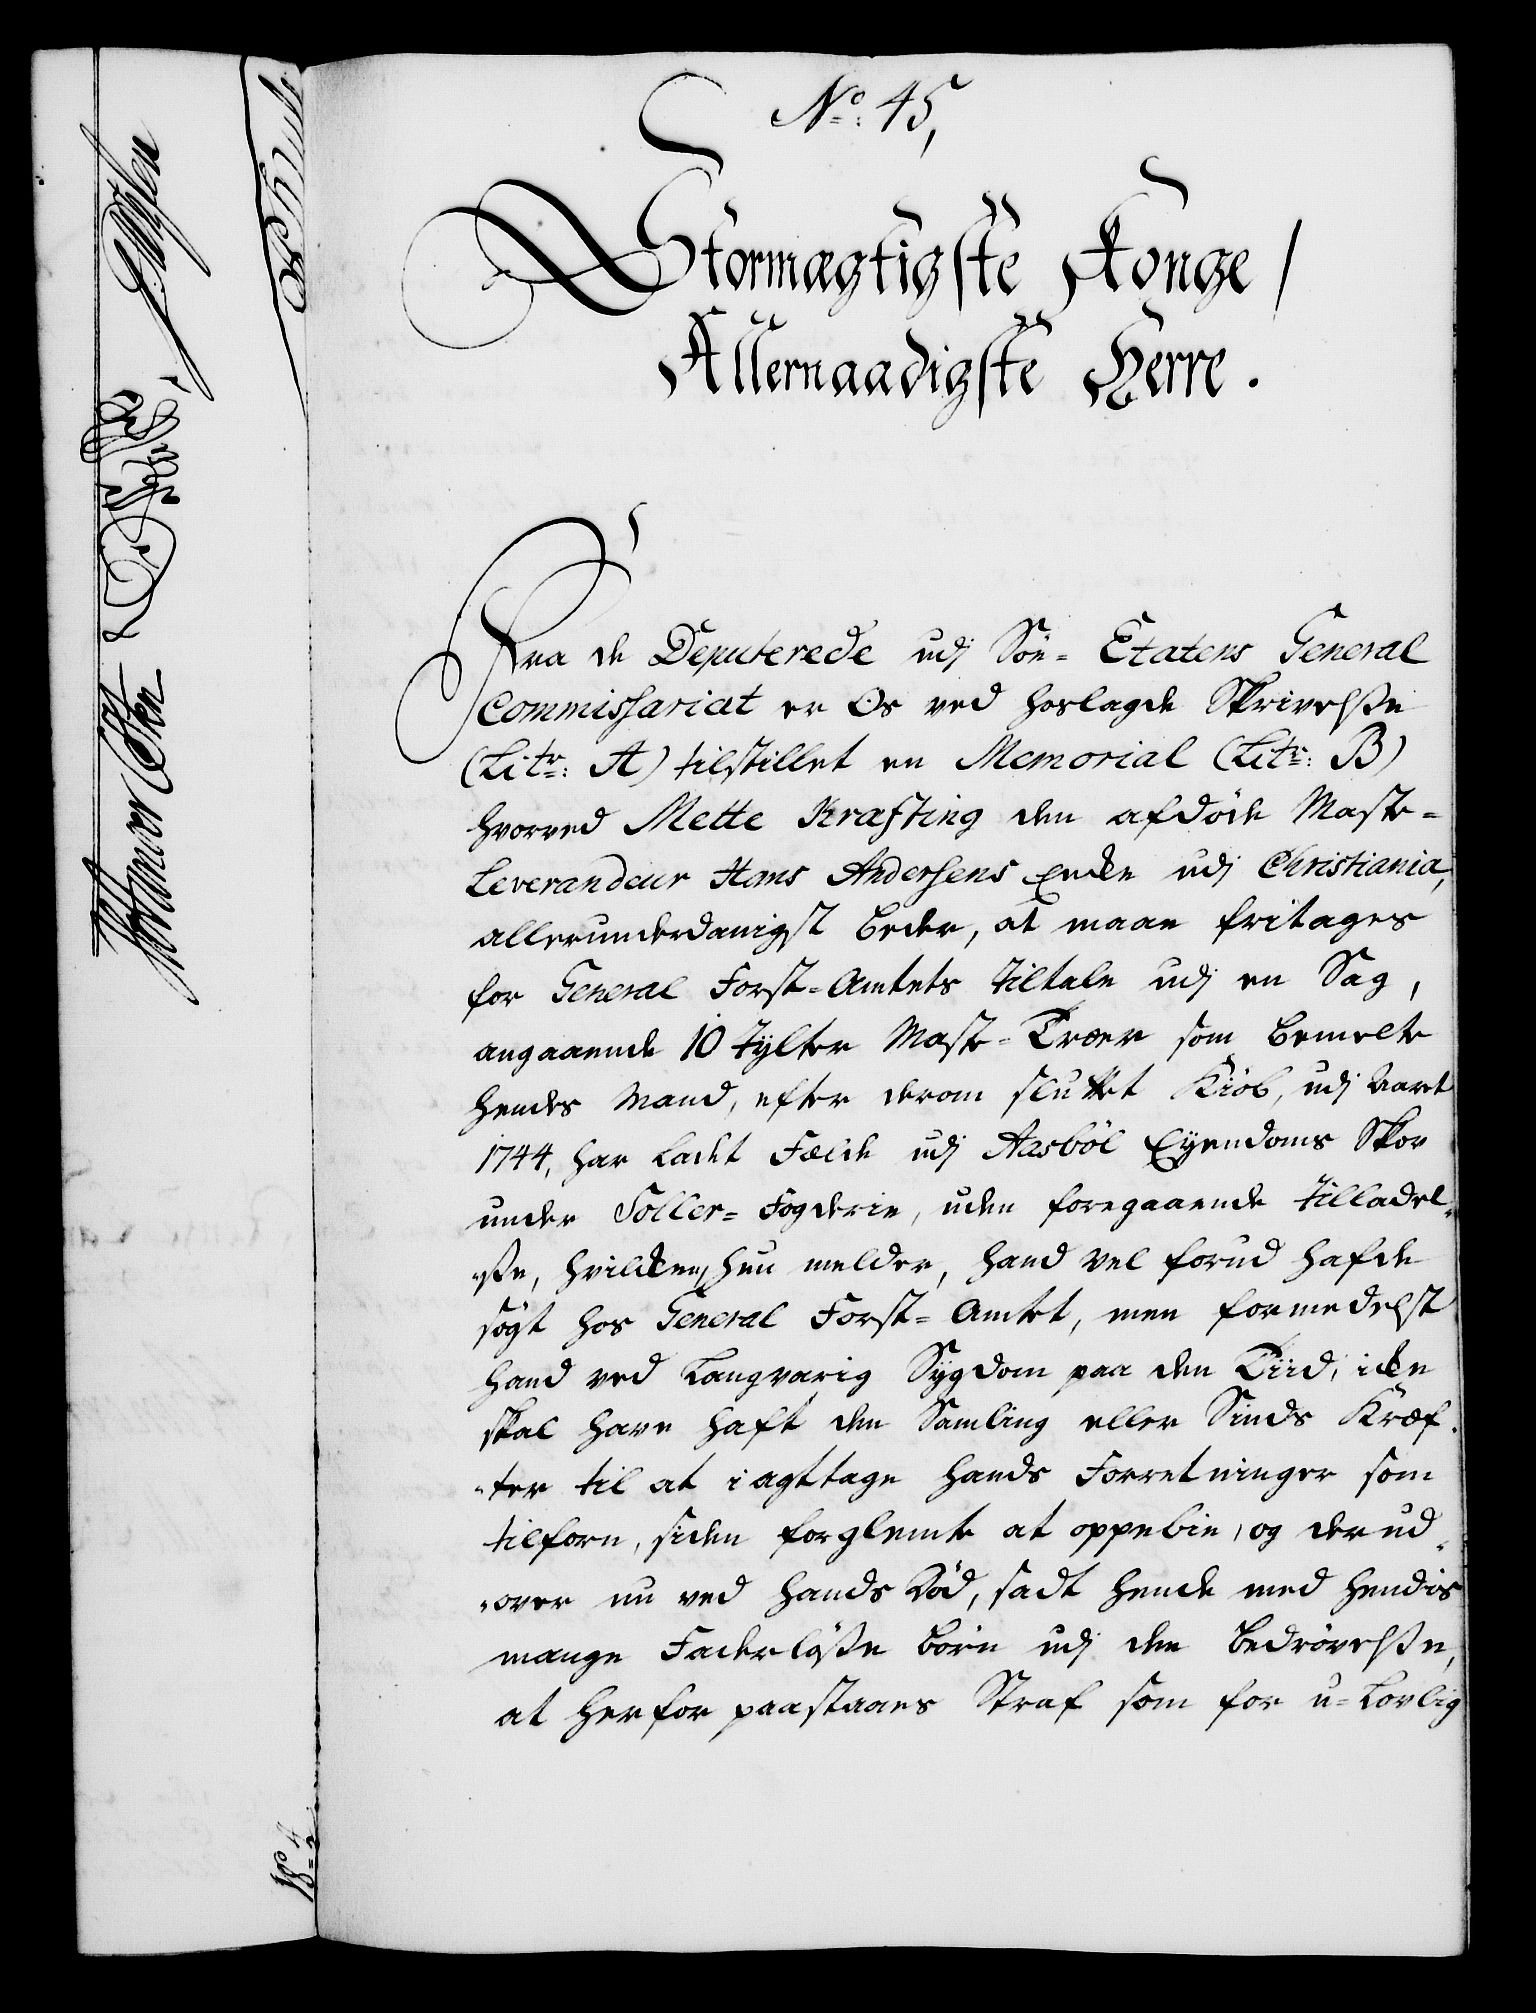 No: 45,
Stormægtigste Konge/
Allernaadigste Herre.
Fra de Deputerede udj Söe-Etatens General
Commissariat er Os ved hoslagde Skrivelsse
(Litr: A) tilstillet en Memorial (Litr: B)
hvorved Mette Kræfting den afdöde Maste-
Leverandeur Hans Andersens Encke udj Christiania,
allerunderdanigst beder, at maae fritages
for General Forst-Amtets tiltale udj en Sag,
angaaende 10 tylter Maste-Træer som bemelte
hendes Mand, efter derom sluttet Kiöb, udj Aaret
1744, har ladet Fælde udj Aasböl Eyendoms Skov
under Soller-Fogderie, uden foregaaende tilladel-
-sse, hvilcken hun melder, hand vel forud hafde
sögt hos General Forst-Amtet, men formedelst
hand ved langvarig Sygdom paa den Tiid, icke
skal have haft den Samling eller Sinds Kræf-
-ter til at iagttage hands Forretninger som
tilforn, siden forglemte at oppebie, og derud-
-over nu ved hands Död, sadt hende med hendis
mange Faderlösse börn udj den bedrövelsse,
at herfor paastaaes Straf som for u-lovlig